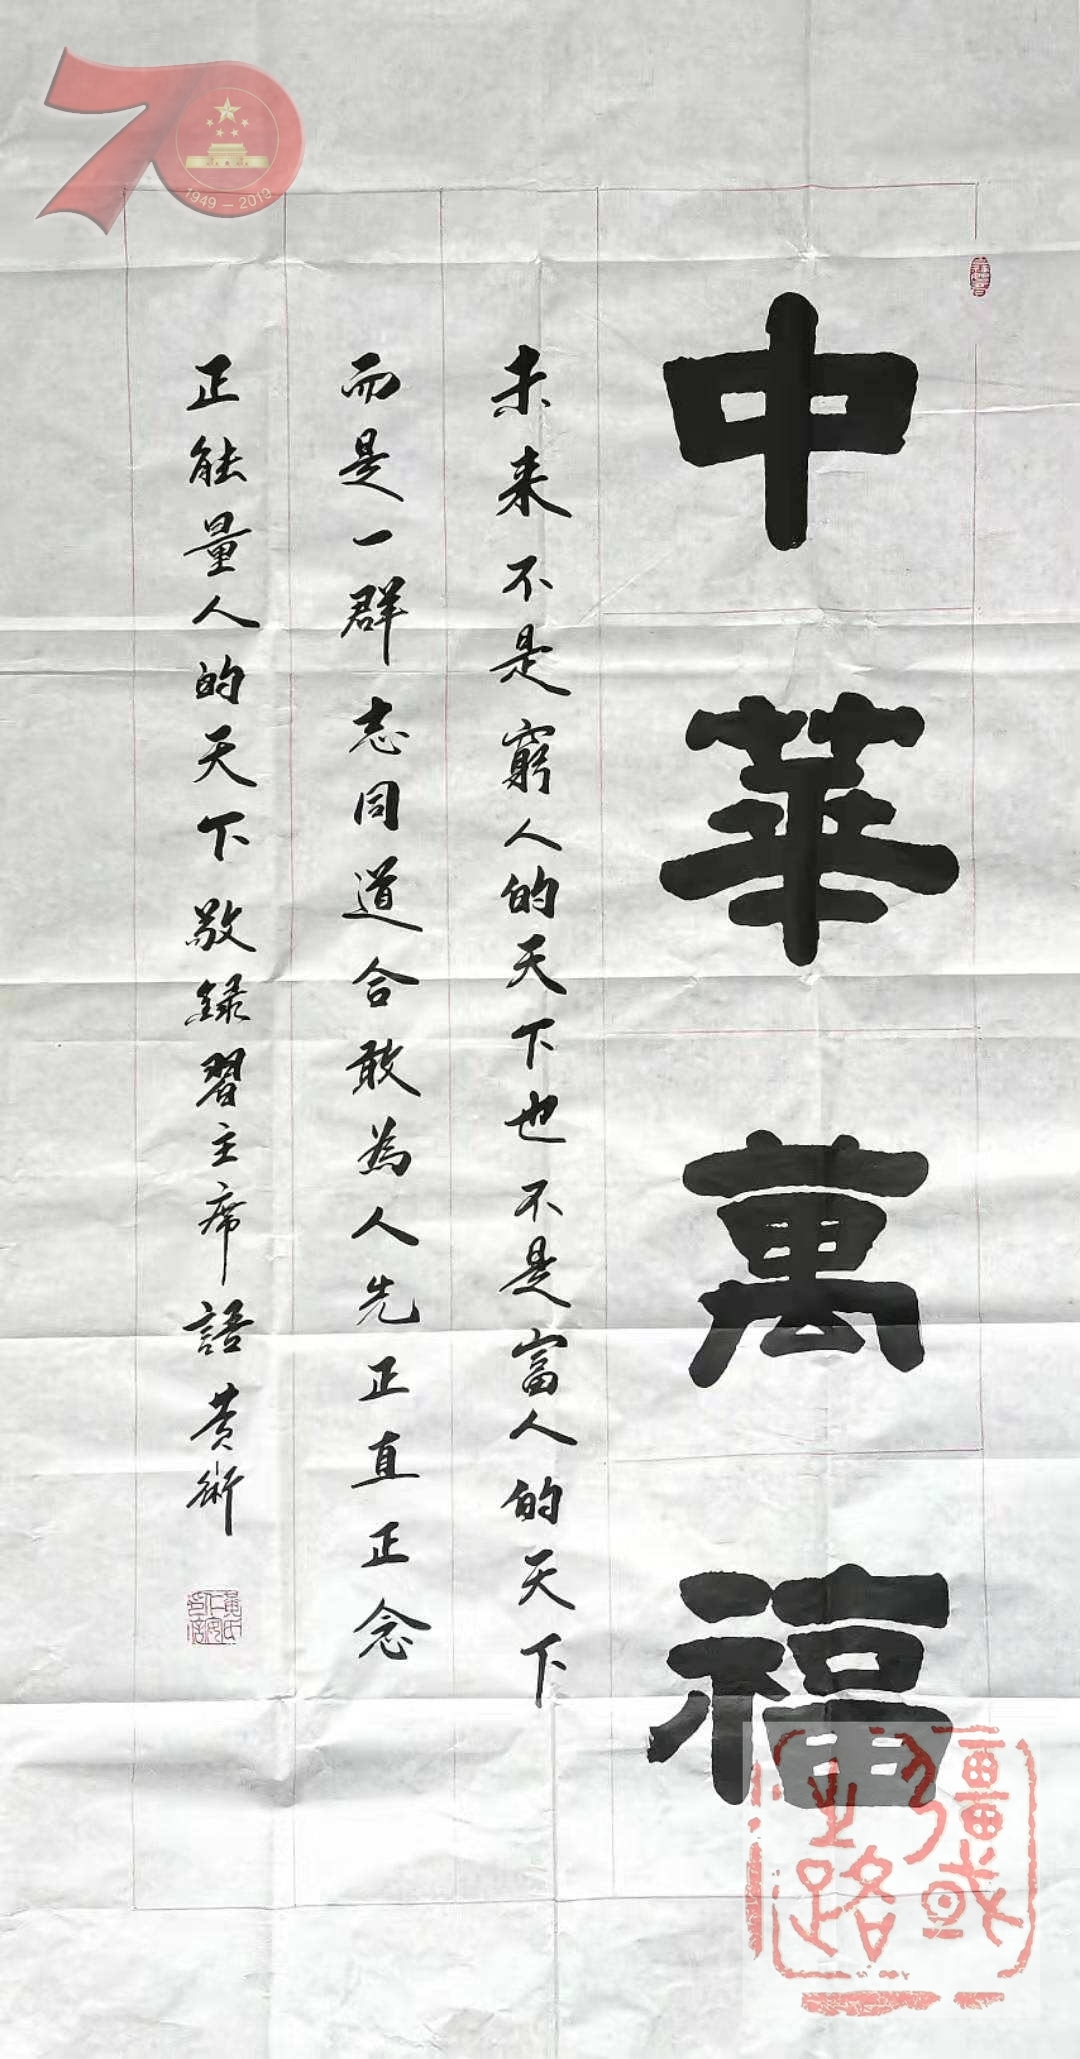 中華萬福
未来不是窮人的天下也不是富人的天下
而是一群志同道合敢為人先正直正念
正能量人的天下敬録習主席語黄術
黄氏仁安
1949－2019
70
疆或之路